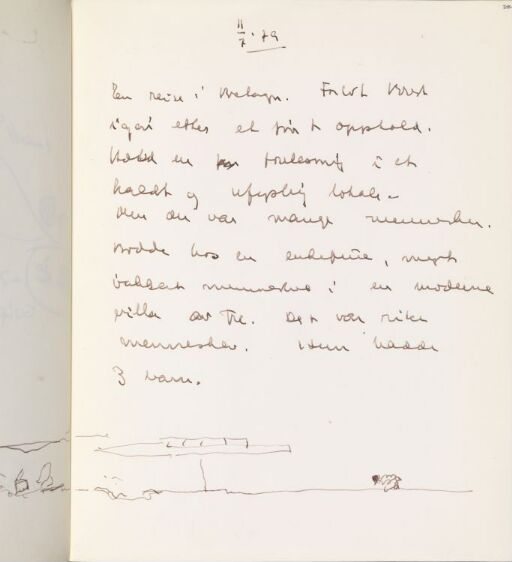 11/7.79
En reise i Bretagne. Fulgt kyst
igjen etter et års opphold.
Holdt en forelesning i et
kaldt og uhyggelig lokale.
Men der var mange mennesker.
Bodde hos en enkefrue, meget
vakkert menneske i en moderne
villa av tre. Det var rike
mennesker. Hun hadde
3 barn.